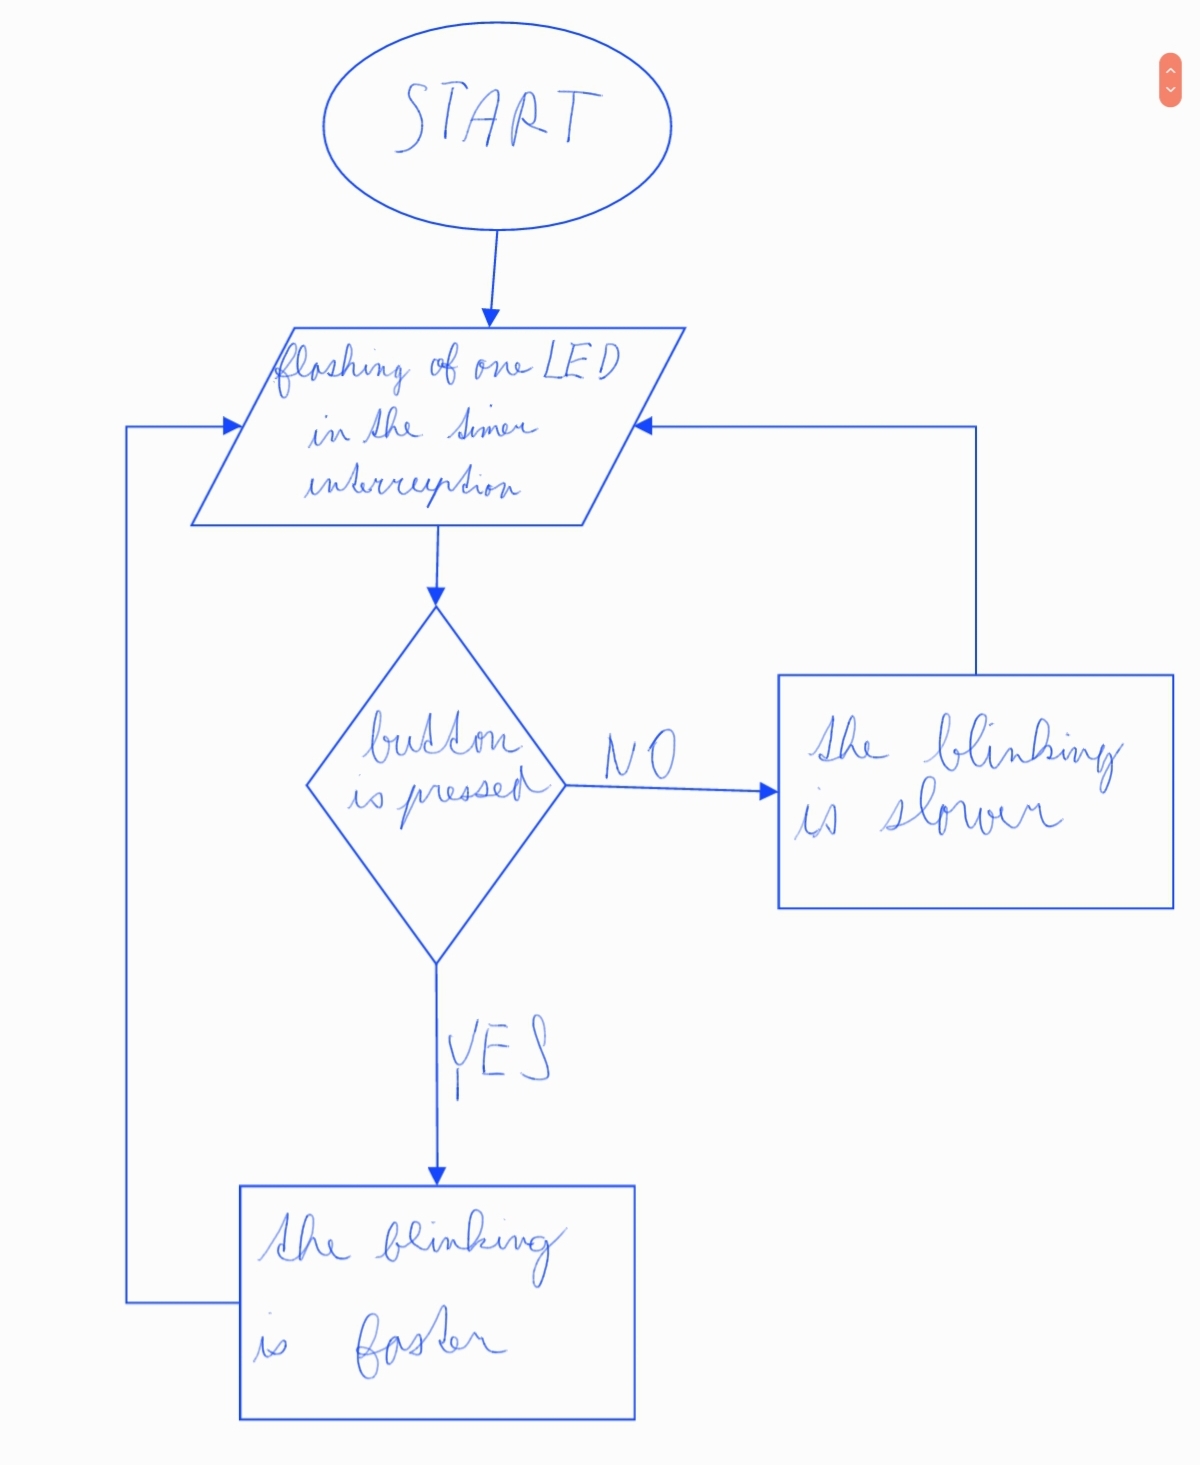 START
flashing of one LED
in the timer
interruption
button
is pressed
NO
the blinking
is slower
YES
the blinking
is faster